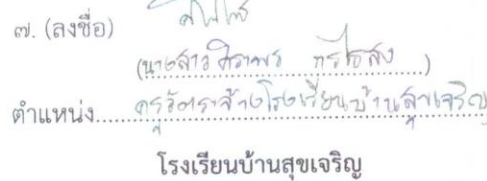 ๗. (ลงชื่อ)
(นางสาว)
ตำแหน่ง ครูอัตราจ้างโรงเรียนบ้านสุขเจริญ
โรงเรียนบ้านสุขเจริญ